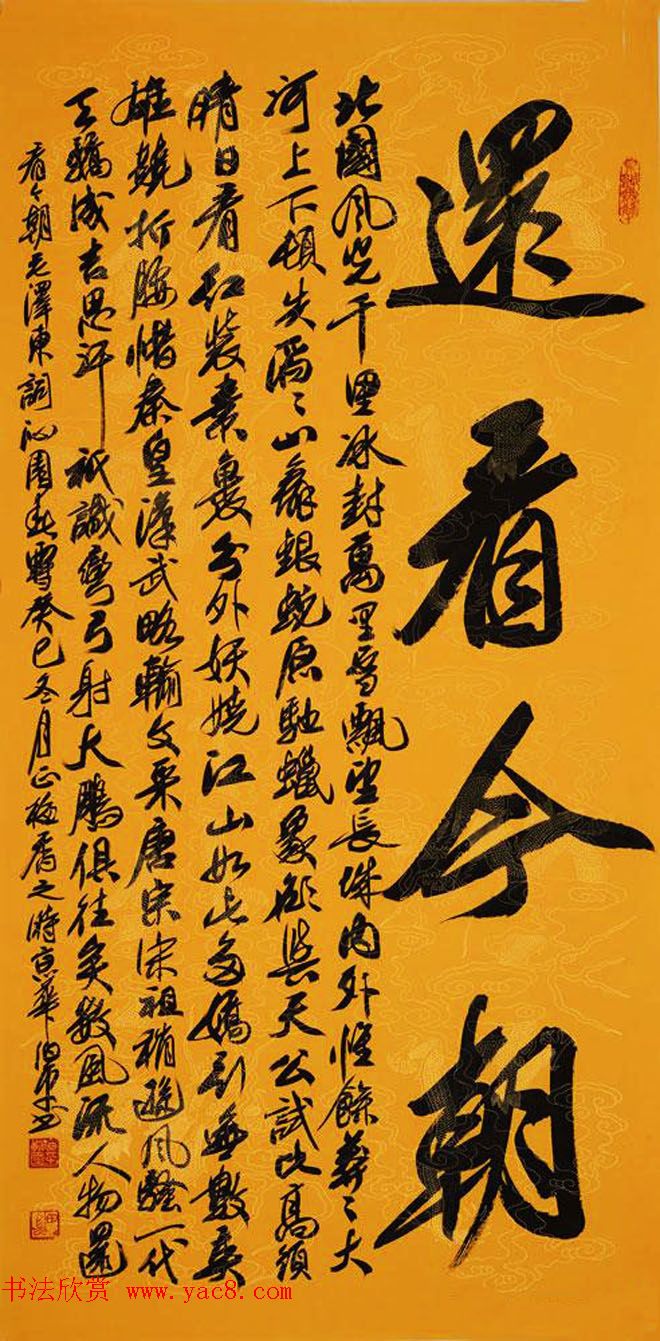 還看今朝
北國風光千里冰封萬里雪飄望長城內外惟餘莽〻大
河上下頓失滔〻山舞銀蛇原馳蠟象欲與天公試比高須
晴日看紅裝素裹分外妖嬈江山如此多嬌引無數英
雄競折腰惜秦皇漢武略輸文采唐宗宋祖稍遜風騷一代
天驕成吉思汗祇識彎弓射大鵰俱往矣數風流人物還
看今朝毛澤東詞沁園春雪癸巳冬月正梅香之時京華書
书法欣赏 www.yac8.com